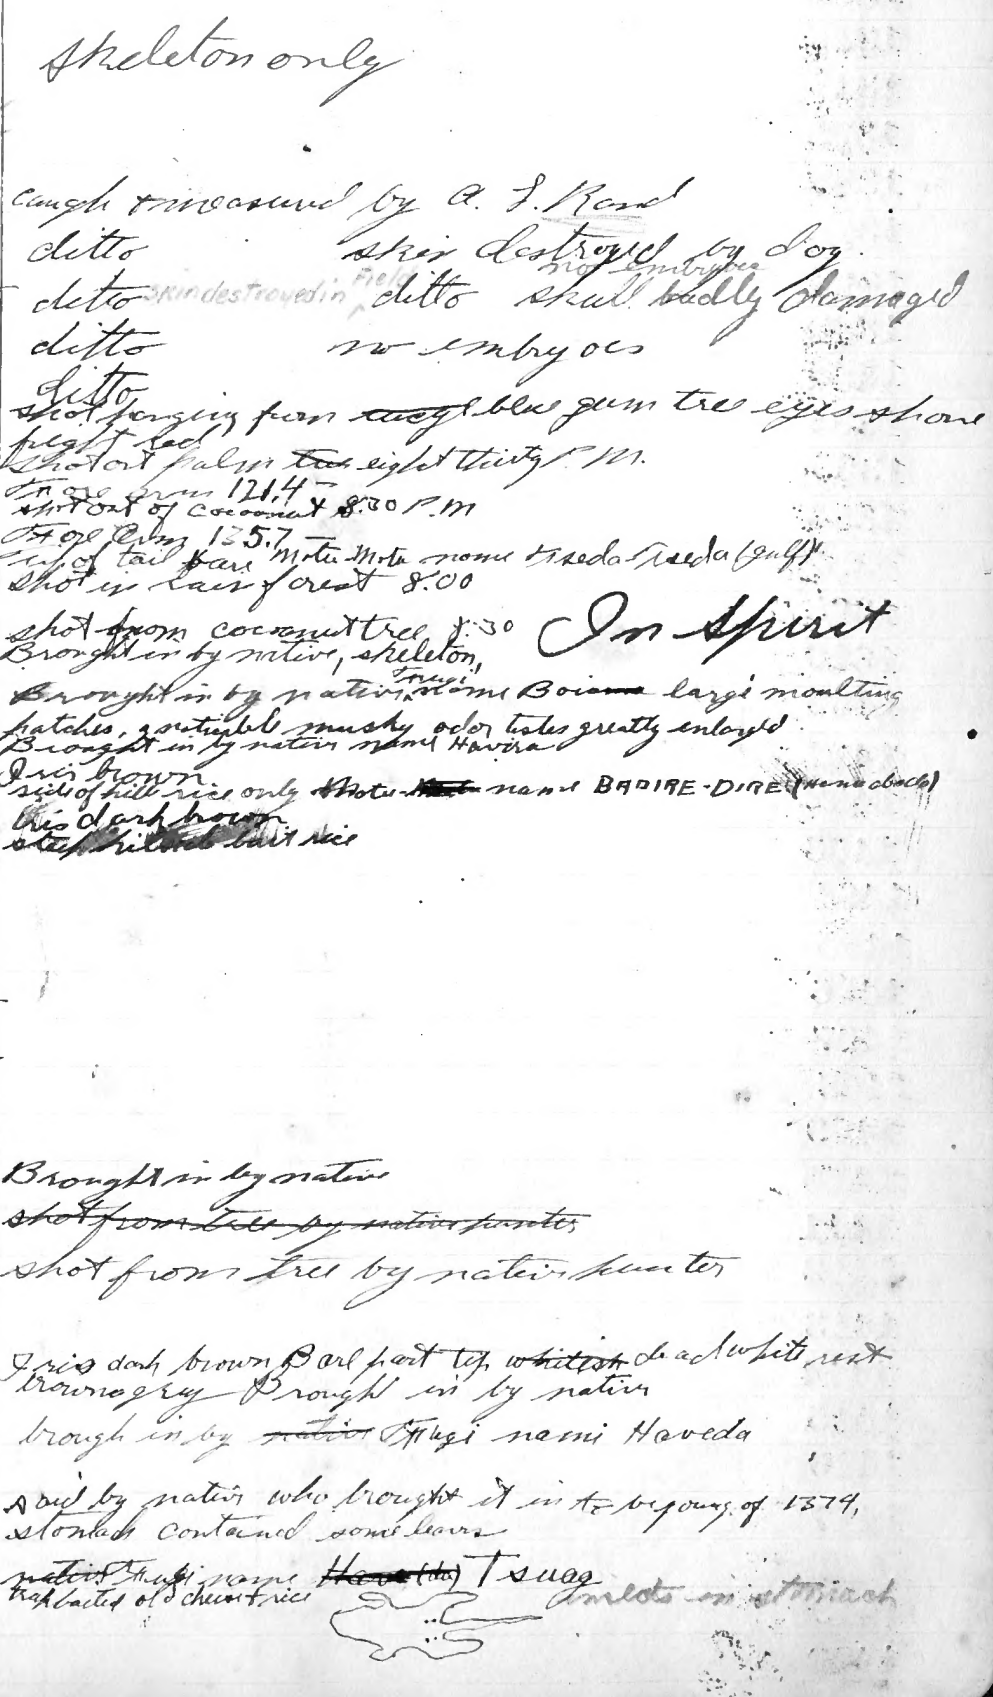 skeleton only
caugh & measured by A. L. Rand
ditto skin destroyed by dog.
no embryoes
ditto skin destroyed in Field ditto skull badly damaged
ditto no embryoes
ditto
shot hanging from blue gum tree eyes shone
bright red
shot out palm tree eight thirty P.M.
Fore arm 121.4
shot out of cocoanut 8:30 P.M
Fore Arm 135.7
Tip of tail bare Motu-Motu name Tseda-Tseda (gulf)
shot in rain forest 8:00
shot from cocoanut tree 8:30 In Spirit
Brought in by native, skeleton,
Brought in by native name large moulting
patches, a noticeable musky odor testes greatly enlarged
Brought in by native name Havira
Iris brown
side of hill rice only Motu name BADIRE-DIRE
Iris dark brown
steep hillside bait rice
Brought in by native
shot from tree by native hunter
shot from tree by native hunter
Iris dark brown Bare part tip whitish dead white rest
brownogrey Brought in by native
brough in by native name Haveda
said by native who brought it in to be young of 1374,
stomach contained some leaves
native name Tsuag
trap baited old cheese & rice in stomach